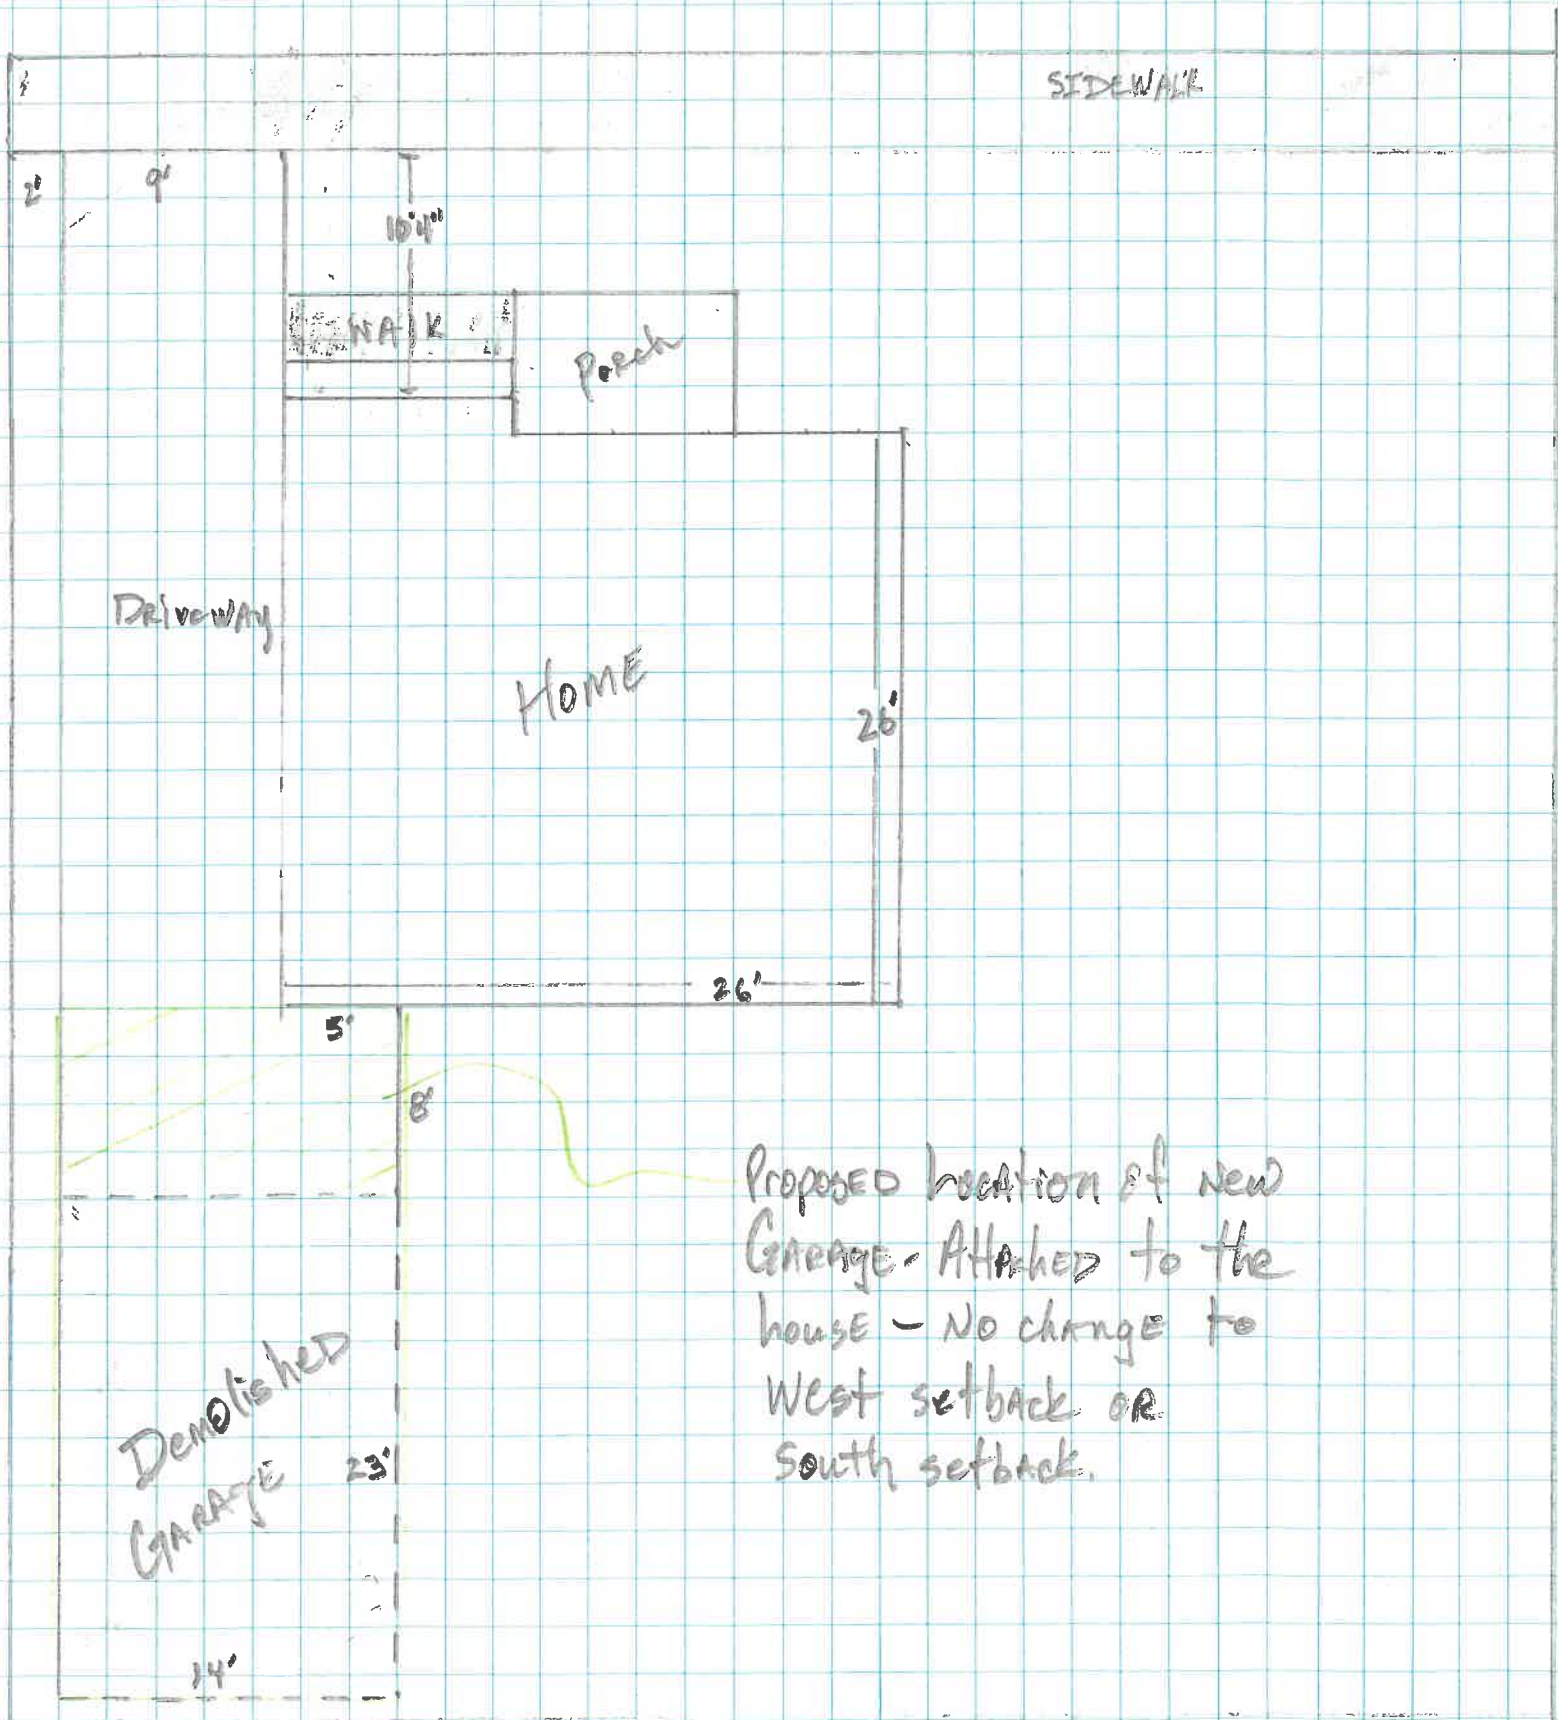 SIDEWALK
2'
9'
10'4"
WALK
Porch
DRIVEWAY
HOME
26'
26'
5'
8'
Proposed Location of New
GARAGE - Attached to the
house - No change to
West setback OR
South setback.
Demolished
GARAGE
23'
14'